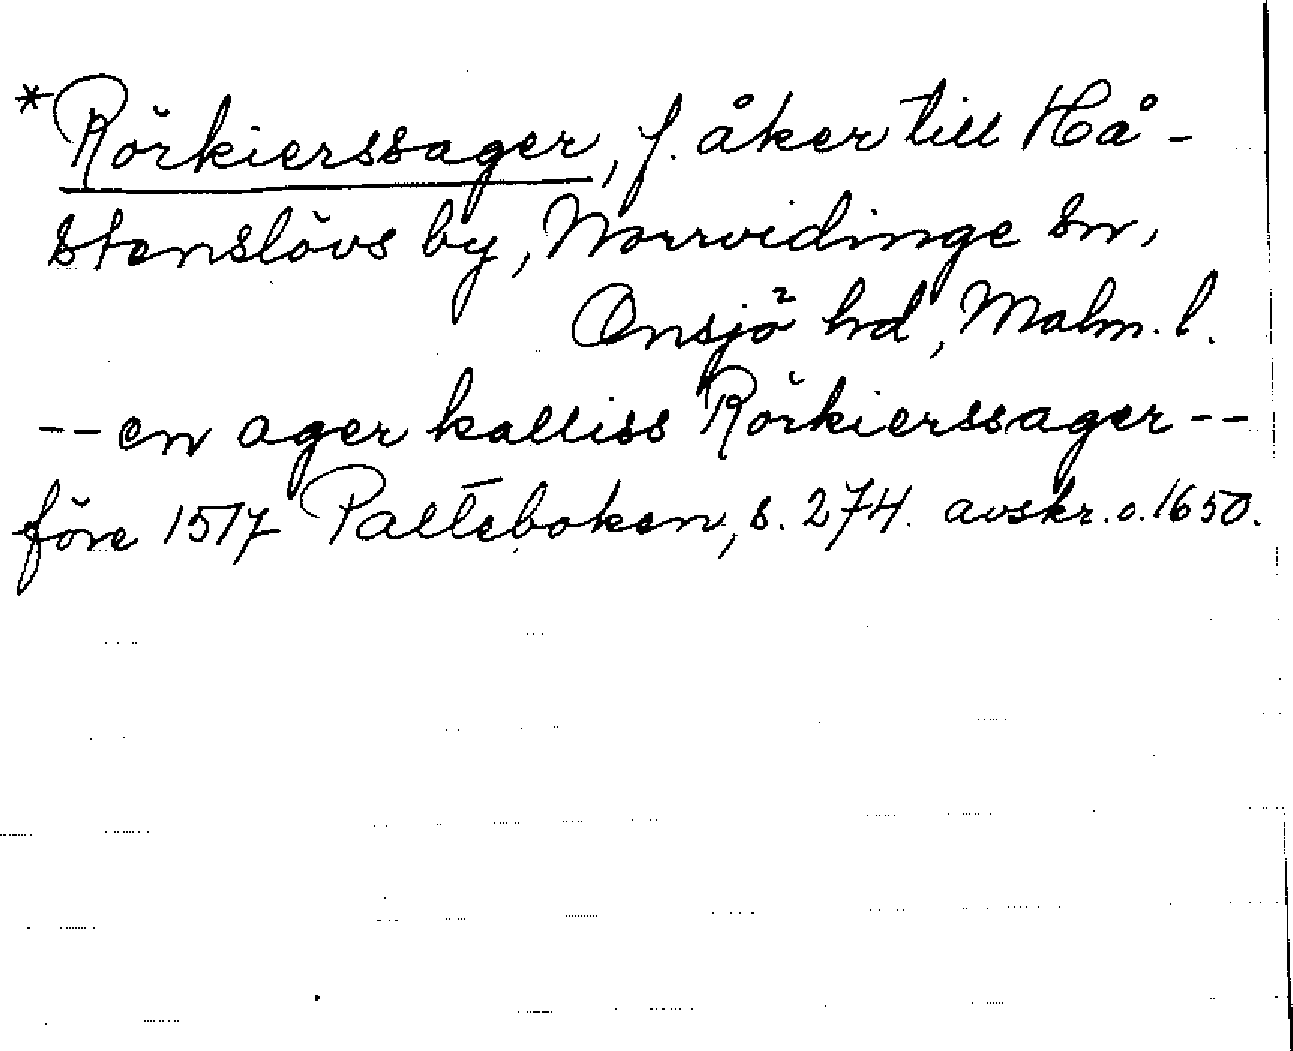 *Rörkierssager, f. åker till Hå-
stenslövs by, Norrvidinge sn,
Onsjö hd, Malm. l.
-- en ager kalliss Rörkierssager --
före 1517 Palteboken, s. 274. avskr. o. 1650.